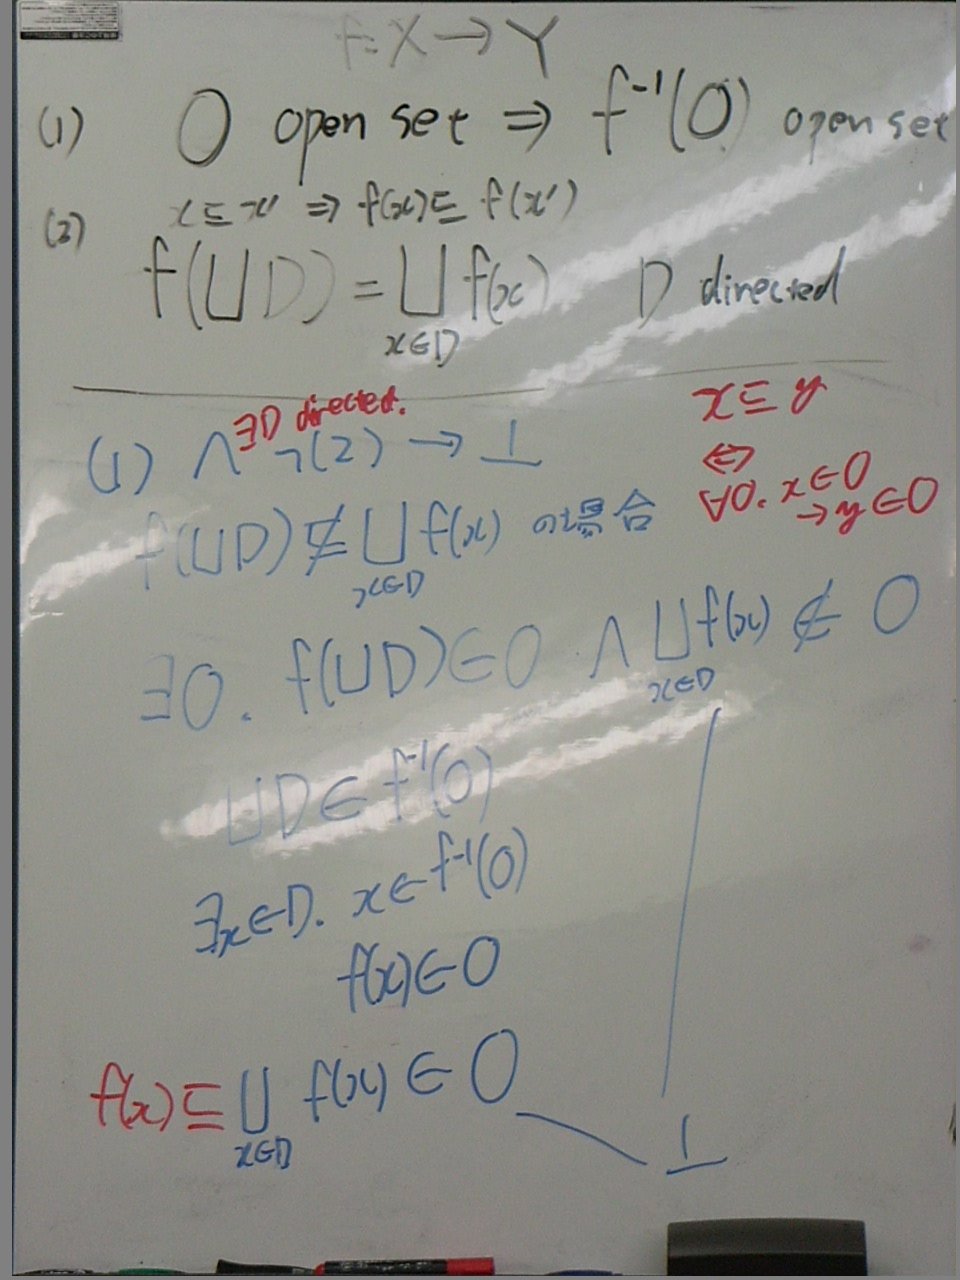 f: X → Y
(1) O open set ⇒ f⁻¹(O) open set
(2) x ⊑ x' ⇒ f(x) ⊑ f(x')
f(⊔D) = ⊔ f(x) D directed
x∈D
∃D directed.
(1) ∧ ¬(2) → ⊥
x ⊑ y
⇔
∀O. x ∈ O
→ y ∈ O
f(⊔D) ⋢ ⊔ f(x) の場合
x∈D
∃O. f(⊔D) ∈ O ∧ ⊔ f(x) ∉ O
x∈D
⊔D ∈ f⁻¹(O)
∃x∈D. x ∈ f⁻¹(O)
f(x) ∈ O
f(x) ⊑ ⊔ f(x) ∈ O
x∈D
⊥